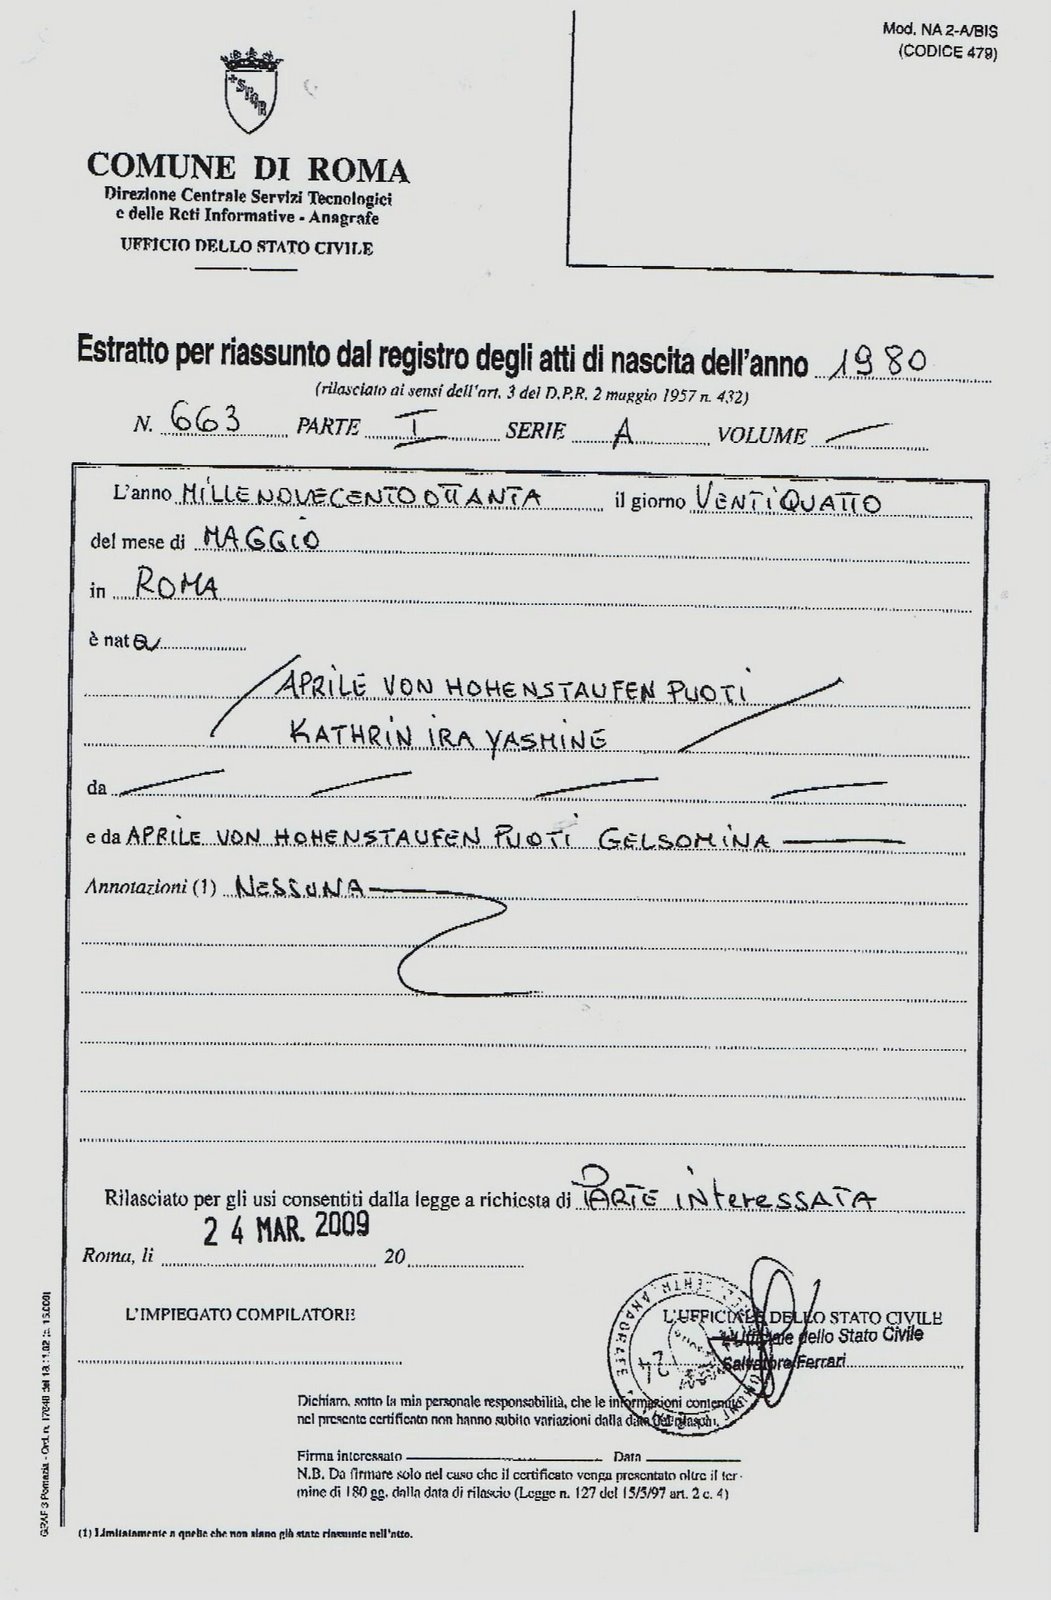 Mod. NA 2-A/BIS
(CODICE 479)
STQR
COMUNE DI ROMA
Direzione Centrale Servizi Tecnologici
e delle Reti Informative - Anagrafe
UFFICIO DELLO STATO CIVILE
Estratto per riassunto dal registro degli atti di nascita dell'anno 1980
(rilasciato ai sensi dell'art. 3 del D.P.R. 2 maggio 1957 n. 432)
N. 663 PARTE I SERIE A VOLUME
L'anno MILLENOVECENTOOTTANTA il giorno VENTIQUATTO
del mese di MAGGIO
in ROMA
è nata
APRILE VON HOHENSTAUFEN PUOTI
KATHRIN IRA YASMINE
da
e da APRILE VON HOHENSTAUFEN PUOTI GELSOMINA
Annotazioni (1) NESSUNA
Rilasciato per gli usi consentiti dalla legge a richiesta di PARTE INTERESSATA
24 MAR. 2009
Roma, li 20
L'IMPIEGATO COMPILATORE
L'UFFICIALE DELLO STATO CIVILE
L'Ufficiale dello Stato Civile
Salvatore Ferrari
24
Dichiaro, sotto la mia personale responsabilità, che le informazioni contenute
nel presente certificato non hanno subito variazioni dalla data del rilascio.
Firma interessato Data
N.B. Da firmare solo nel caso che il certificato venga presentato oltre il ter-
mine di 180 gg. dalla data di rilascio (Legge n. 127 del 15/5/97 art. 2 c. 4)
(1) Limitatamente a quelle che non siano già state riassunte nell'atto.
GRAF 3 Pomezia - Ord. n. 17648 del 18.11.02